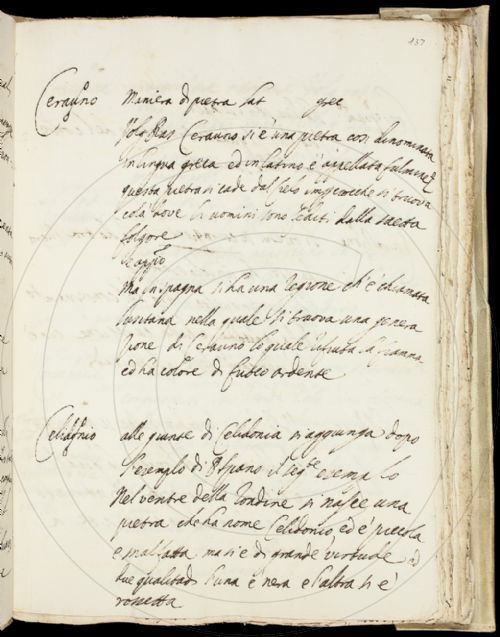 137
Cerauno Miniera di pietra lat grec
Volg Ras Cerauno si è una pietra cosi dinominata
in lingua greca ed in latino è appellata fulmine
questa pietra si cade dal Cielo imperocche si truova
colà dove li uomini sono fediti dalla saetta
folgore
Ma in Ispagna si ha una regione ch'è chiamata
lusitana nella quale si truova una genera
zione di Cerauno lo quale la fiamma
ed ha colore di fuoco ardente
Celidonio alle giunte di Celidonia si aggiunga dopo
l'esempio di il seg.te esemplo
Nel ventre della rondine si nasce una
pietra che ha nome Celidonio, ed è piccola
e ma si è di grande vertude
due qualitadi l'una è nera e l'altra si è
rossetta